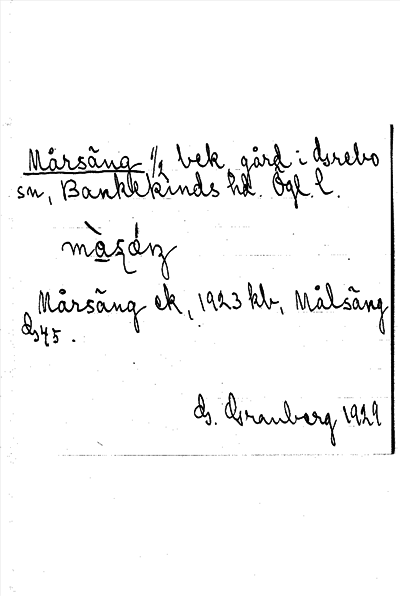 Mårsäng 1/2 bek. gård i Grebo
sn, Bankekinds hd. Ögl. l.
Mårsäng ek, 1923 kb, Målsäng
G45.
G. Granberg 1929